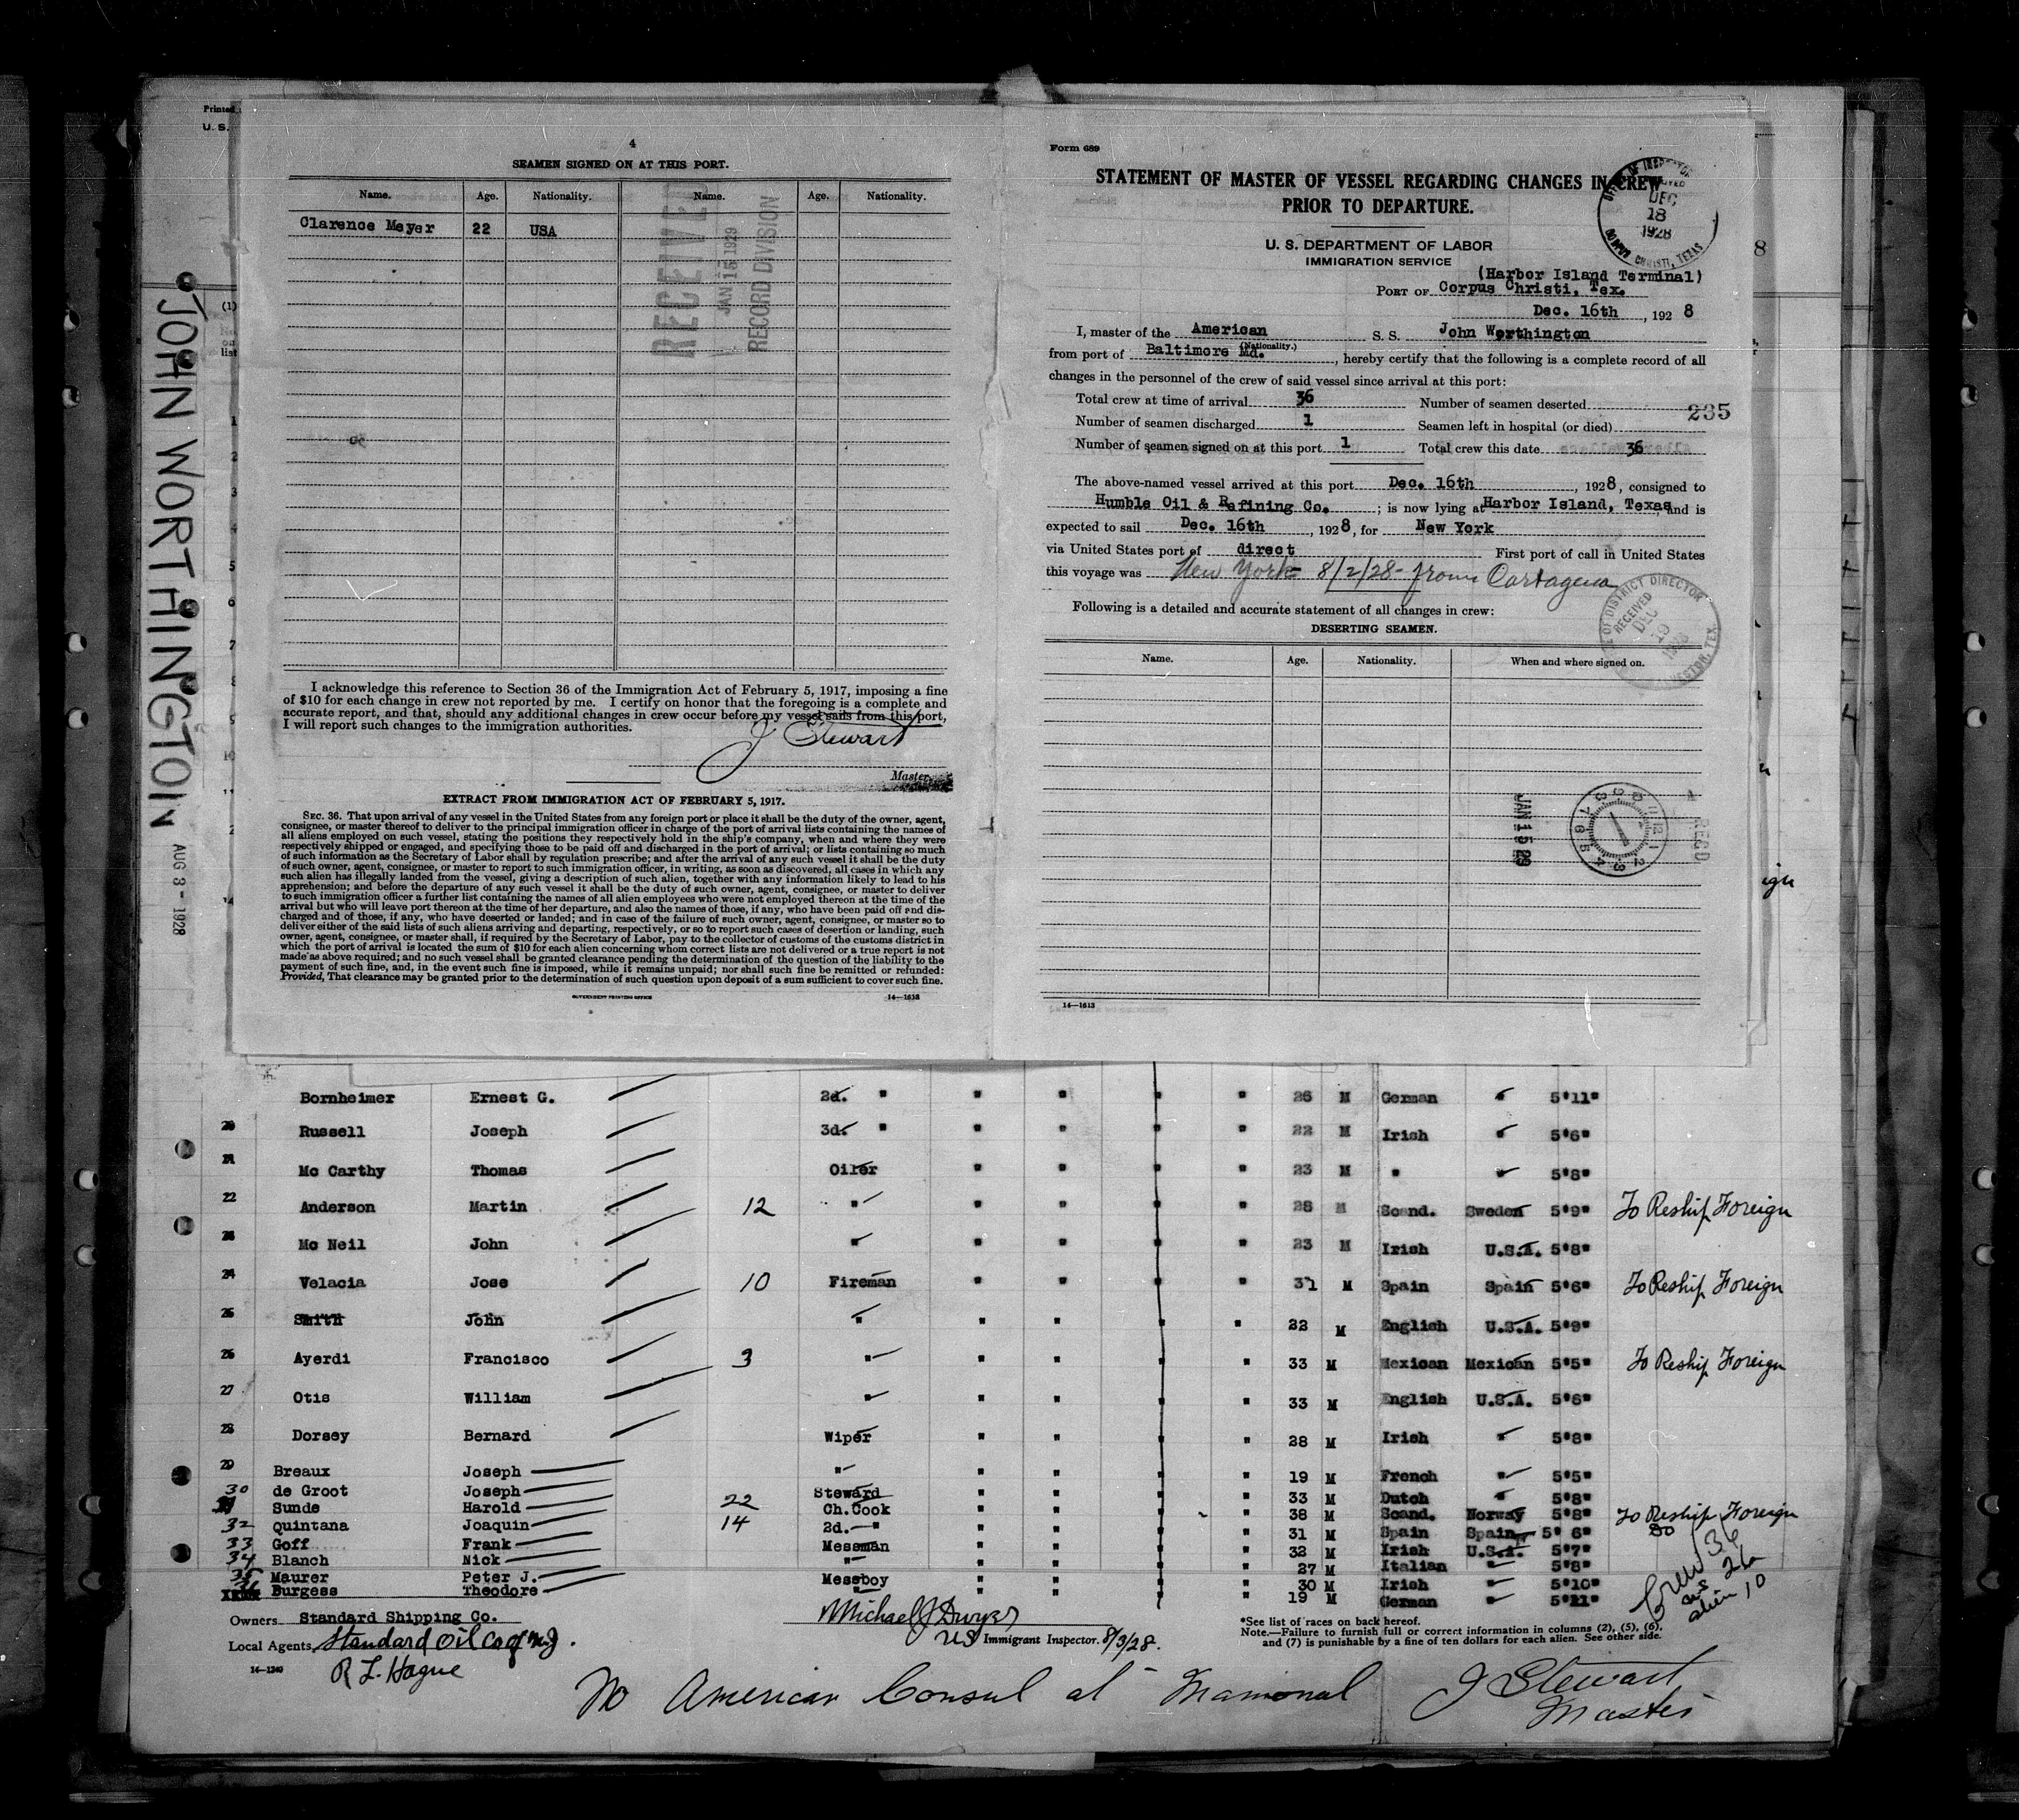 Printed
U. S.
JOHN WORTHINGTON
AUG 8 - 1928
4
SEAMEN SIGNED ON AT THIS PORT.
Name. Age. Nationality. Name. Age. Nationality.
Clarence Meyer 22 USA
RECEIVED
JAN 15 1929
RECORD DIVISION
I acknowledge this reference to Section 36 of the Immigration Act of February 5, 1917, imposing a fine
of $10 for each change in crew not reported by me. I certify on honor that the foregoing is a complete and
accurate report, and that, should any additional changes in crew occur before my vessel sails from this port,
I will report such changes to the immigration authorities.
J Stewart
Master.
EXTRACT FROM IMMIGRATION ACT OF FEBRUARY 5, 1917.
SEC. 36. That upon arrival of any vessel in the United States from any foreign port or place it shall be the duty of the owner, agent,
consignee, or master thereof to deliver to the principal immigration officer in charge of the port of arrival lists containing the names of
all aliens employed on such vessel, stating the positions they respectively hold in the ship's company, when and where they were
respectively shipped or engaged, and specifying those to be paid off and discharged in the port of arrival; or lists containing so much
of such information as the Secretary of Labor shall by regulation prescribe; and after the arrival of any such vessel it shall be the duty
of such owner, agent, consignee, or master to report to such immigration officer, in writing, as soon as discovered, all cases in which any
such alien has illegally landed from the vessel, giving a description of such alien, together with any information likely to lead to his
apprehension; and before the departure of any such vessel it shall be the duty of such owner, agent, consignee, or master to deliver
to such immigration officer a further list containing the names of all alien employees who were not employed thereon at the time of the
arrival but who will leave port thereon at the time of her departure, and also the names of those, if any, who have been paid off and dis-
charged and of those, if any, who have deserted or landed; and in case of the failure of such owner, agent, consignee, or master so to
deliver either of the said lists of such aliens arriving and departing, respectively, or so to report such cases of desertion or landing, such
owner, agent, consignee, or master shall, if required by the Secretary of Labor, pay to the collector of customs of the customs district in
which the port of arrival is located the sum of $10 for each alien concerning whom correct lists are not delivered or a true report is not
made as above required; and no such vessel shall be granted clearance pending the determination of the question of the liability to the
payment of such fine, and, in the event such fine is imposed, while it remains unpaid; nor shall such fine be remitted or refunded:
Provided, That clearance may be granted prior to the determination of such question upon deposit of a sum sufficient to cover such fine.
GOVERNMENT PRINTING OFFICE 14—1613
Form 689
STATEMENT OF MASTER OF VESSEL REGARDING CHANGES IN CREW
PRIOR TO DEPARTURE.
DEC 18 1928
CORPUS CHRISTI, TEXAS
U. S. DEPARTMENT OF LABOR
IMMIGRATION SERVICE
(Harbor Island Terminal)
PORT OF Corpus Christi, Tex.
Dec. 16th, 1928
I, master of the American S. S. John Worthington
(Nationality.)
from port of Baltimore Md., hereby certify that the following is a complete record of all
changes in the personnel of the crew of said vessel since arrival at this port:
Total crew at time of arrival 36 Number of seamen deserted
235
Number of seamen discharged 1 Seamen left in hospital (or died)
Number of seamen signed on at this port 1 Total crew this date 36
The above-named vessel arrived at this port Dec. 16th, 1928, consigned to
Humble Oil & Refining Co.; is now lying at Harbor Island, Texas and is
expected to sail Dec. 16th, 1928, for New York
via United States port of direct First port of call in United States
this voyage was New York 8/2/28 - from Cartagena
Following is a detailed and accurate statement of all changes in crew:
DISTRICT DIRECTOR RECEIVED DEC 19
DESERTING SEAMEN.
Name. Age. Nationality. When and where signed on.
JAN 15 29
REC'D
14—1613
Bornheimer Ernest G. 2d. " " " " " 26 M German " 5'11"
20 Russell Joseph 3d. " " " " " 22 M Irish " 5'6"
21 Mc Carthy Thomas Oiler " " " " 23 M " " 5'8"
22 Anderson Martin 12 " " " " " 28 M Scand. Sweden 5'9" To Reship Foreign
23 Mc Neil John " " " " " 23 M Irish U.S.A. 5'8"
24 Velacia Jose 10 Fireman " " " " 31 M Spain Spain 5'6" To Reship Foreign
25 Smith John " " " " " 22 M English U.S.A. 5'9"
26 Ayerdi Francisco 3 " " " " " 33 M Mexican Mexican 5'5" To Reship Foreign
27 Otis William " " " " " 33 M English U.S.A. 5'6"
28 Dorsey Bernard Wiper " " " " 28 M Irish " 5'8"
29 Breaux Joseph " " " " " 19 M French " 5'5"
30 de Groot Joseph Steward " " " " 33 M Dutch " 5'8"
31 Sunde Harold 22 Ch.Cook " " " " 38 M Scand. Norway 5'8" To Reship Foreign
32 Quintana Joaquin 14 2d. " " " " " 31 M Spain Spain 5' 6" Do
33 Goff Frank Messman " " " " 32 M Irish U.S.A. 5'7"
34 Blanch Nick " " " " " 27 M Italian " 5'8"
35 Maurer Peter J. Messboy " " " " 30 M Irish " 5'10"
36 Burgess Theodore " " " " " 19 M German " 5'11"
Crew 36
aus 26
alien 10
Owners Standard Shipping Co.
Local Agents Standard Oil Co of N.J.
14—1240
R L. Hague
Michael J Dwyer
US Immigrant Inspector. 8/3/28.
*See list of races on back hereof.
Note.—Failure to furnish full or correct information in columns (2), (5), (6),
and (7) is punishable by a fine of ten dollars for each alien. See other side.
No American Consul at Mamonal J Stewart
Master